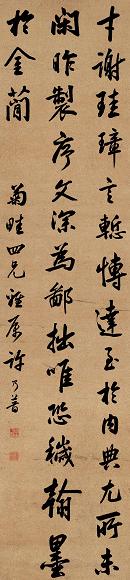 才謝珪璋言慙愽達至於內典尤所未
閑昨製序文深為鄙拙唯恐穢翰墨
於金簡
菊畦四兄雅屬許乃普